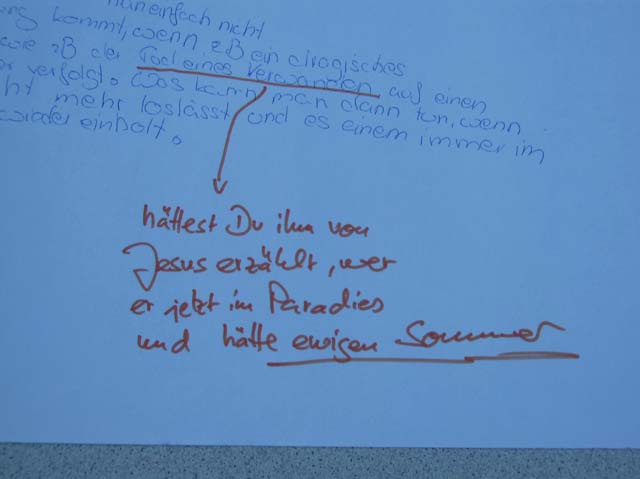 nun einfach nicht
kommt, wenn zB ein tragisches
wie zB der Tod eines Verwandten auf einen
verfolgt. Was kann man dann tun, wenn
mehr loslässt und es einem immer im
wieder einholt.
hättest Du ihm von
Jesus erzählt, wer
er jetzt im Paradies
und hätte ewigen Sommer